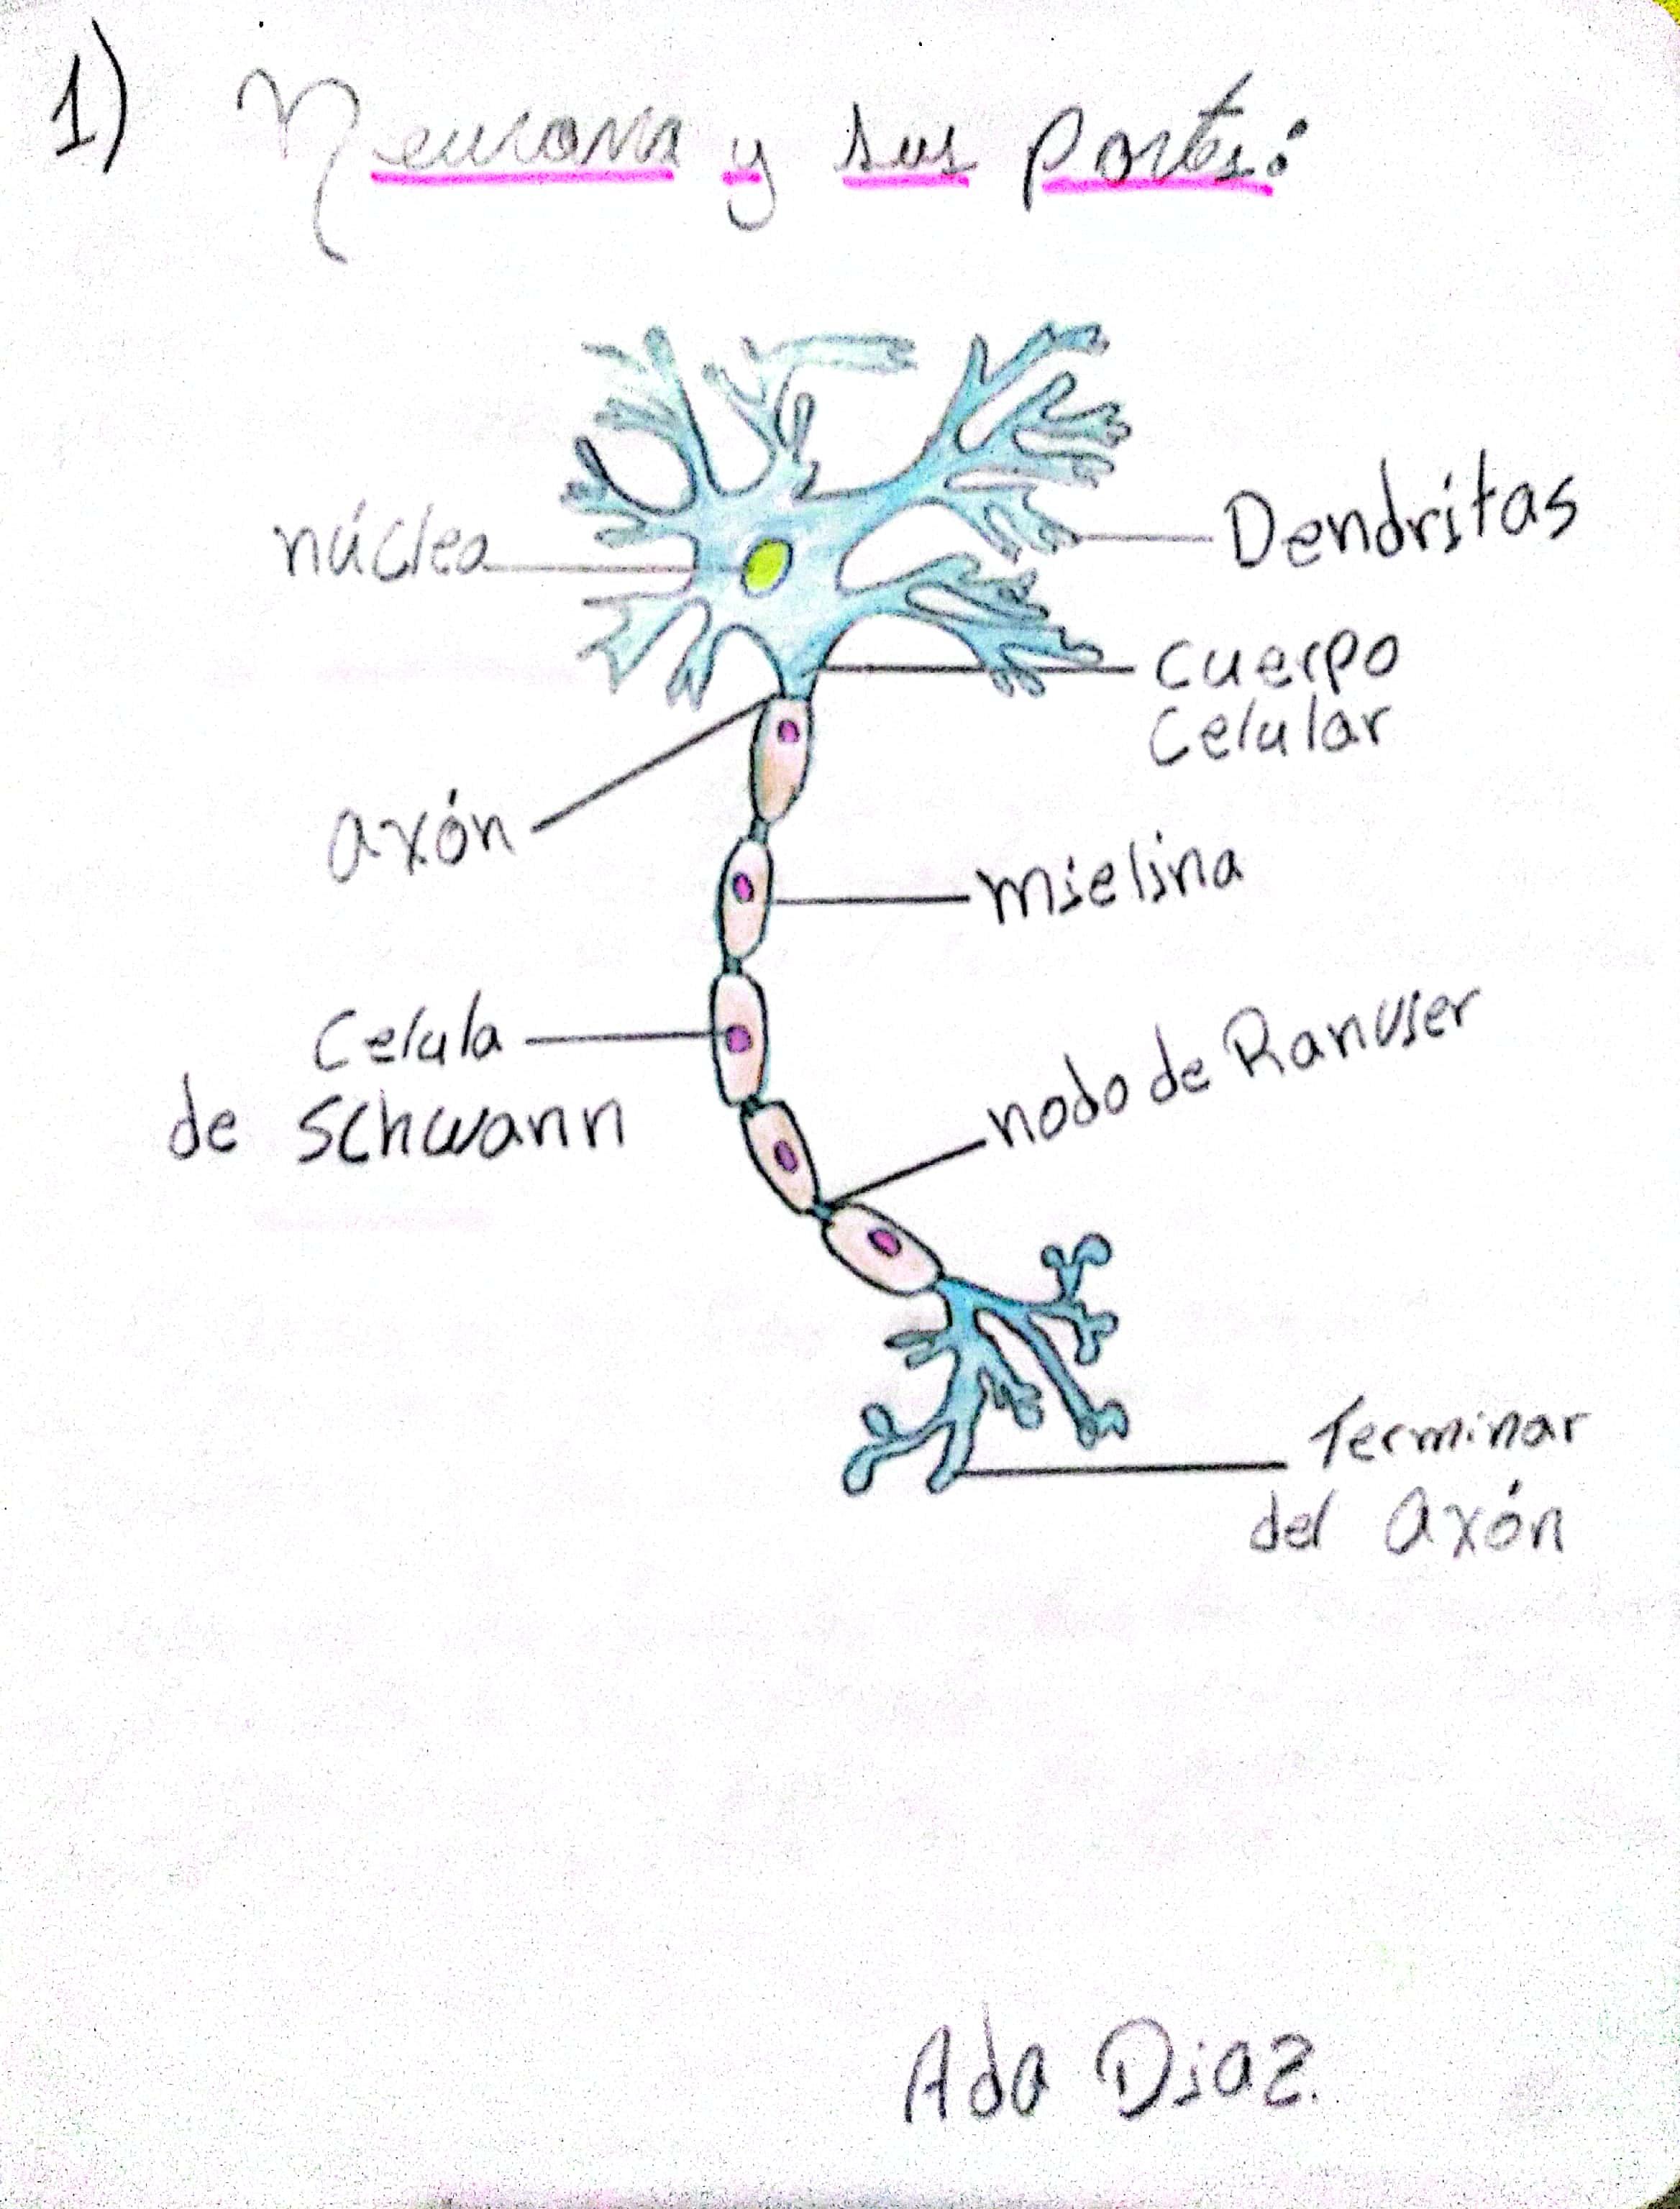 1) Neurona y sus partes:
núcleo
Dendritas
cuerpo
celular
axón
mielina
Celula
de Schwann
nodo de Ranvier
Terminar
del axón
Ada Diaz.